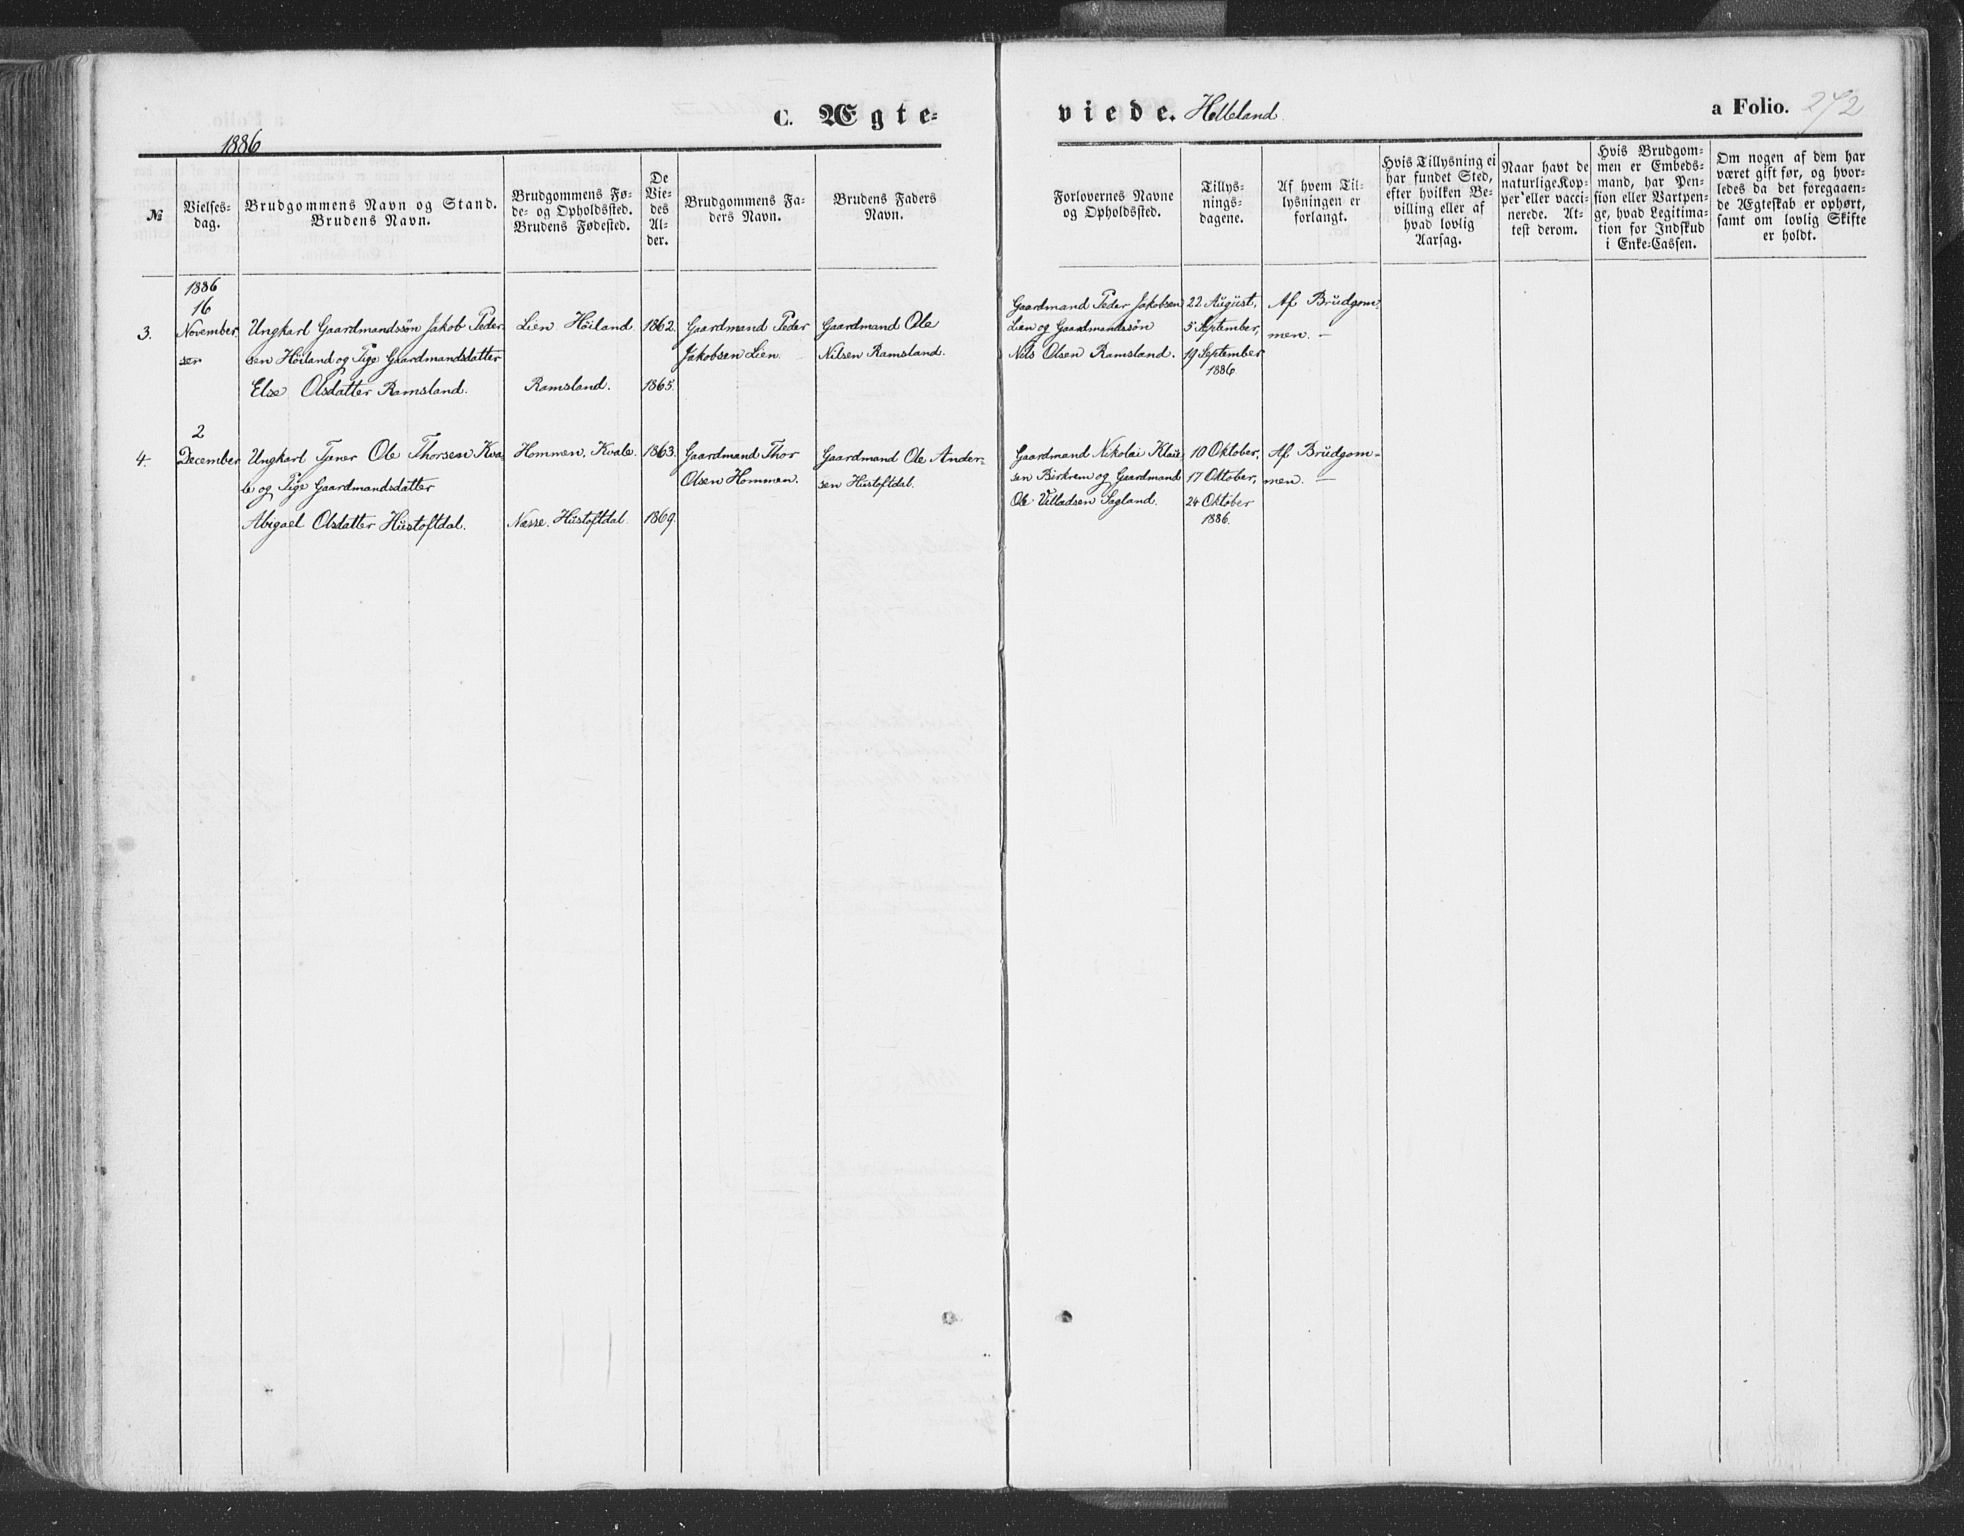 C. Ægte-
viede. Helleland.
a Folio. 272
1886
№
Vielses-
dag.
Brudgommens Navn og Stand.
Brudens Navn.
Brudgommens Fø-
de- og Opholdssted.
Brudens Fødested.
De
Vie-
des
Al-
der.
Brudgommens Fa-
ders Navn.
Brudens Faders
Navn.
Forlovernes Navne
og Opholdssted.
Tillys-
nings-
dagene.
Af hvem Til-
lysningen er
forlangt.
Hvis Tillysning ei
har fundet Sted,
efter hvilken Be-
villing eller af
hvad lovlig
Aarsag.
Naar havt de
naturlige Kop-
per eller vacci-
nerede. At-
test derom.
Hvis Brudgom-
men er Embeds-
mand, har Pen-
sion eller Vartpen-
ge, hvad Legitima-
tion for Indskud
i Enke-Cassen.
Om nogen af dem har
været gift før, og hvor-
ledes da det foregaaen-
de Ægteskab er ophørt,
samt om lovlig Skifte
er holdt.
3.
1886
16
November
Ungkarl Gaardmandssøn Jakob Peder-
sen Höiland og Pige Gaardmandsdatter
Else Olsdatter Ramsland.
Lien Höiland.
Ramsland.
1862.
1865.
Gaardmand Peder
Jakobsen Lien.
Gaardmand Ole
Nilsen Ramsland.
Gaardmand Peder Jakobsen
Lien og Gaardmandssön
Nils Olsen Ramsland.
22 August,
5 September,
19 September
1886
Af Brudgom-
men. —
4.
2
December
Ungkarl Tjener Ole Thorsen Kva-
le og Pige Gaardmandsdatter
Abigael Olsdatter Hustoftdal.
Hommen. Kvale.
Nasse. Hustoftdal.
1863.
1869.
Gaardmand Thor
Olsen Hommen.
Gaardmand Ole Ander-
sen Hustoftdal.
Gaardmand Nikolai Klau-
sen Birkrem og Gaardmand
Ole Villadsen Sagland.
10 Oktober,
17 Oktober,
24 Oktober
1886.
Af Brudgom-
men. —